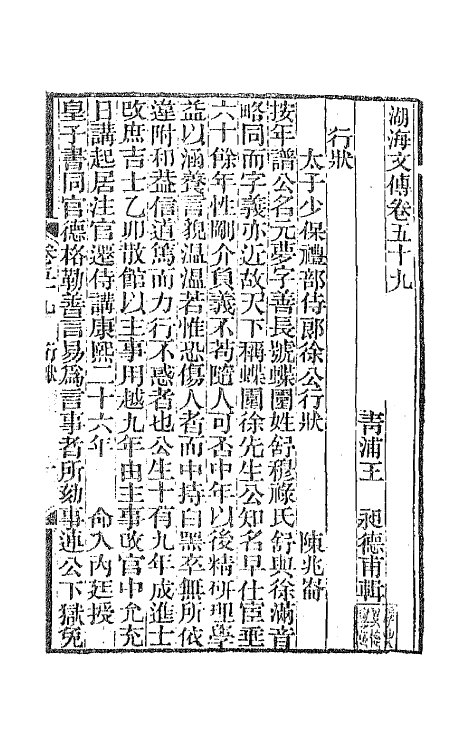 湖海文傳卷五十九
青浦王　昶德甫輯
行狀
太子少保禮部侍郎徐公行狀　陳兆崙
按年譜公名元夢字善長號蝶園姓舒穆祿氏舒與徐滿音
略同而字義亦近故天下稱蝶園徐先生公知名早仕宦垂
六十餘年性剛介負義不苟隨人可否中年以後精研理學
益以涵養言貌温温若惟恐傷人者而中持白黑卒無所依
違附和葢信道篤而力行不惑者也公生十有九年成進士
改庶吉士乙卯散館以主事用越九年由主事改官中允充
日講起居注官遷侍講康熙二十六年　命入內廷授
皇子書同官德格勒善言易爲言事者所劾事連公下獄免
卷五十九　行狀　一